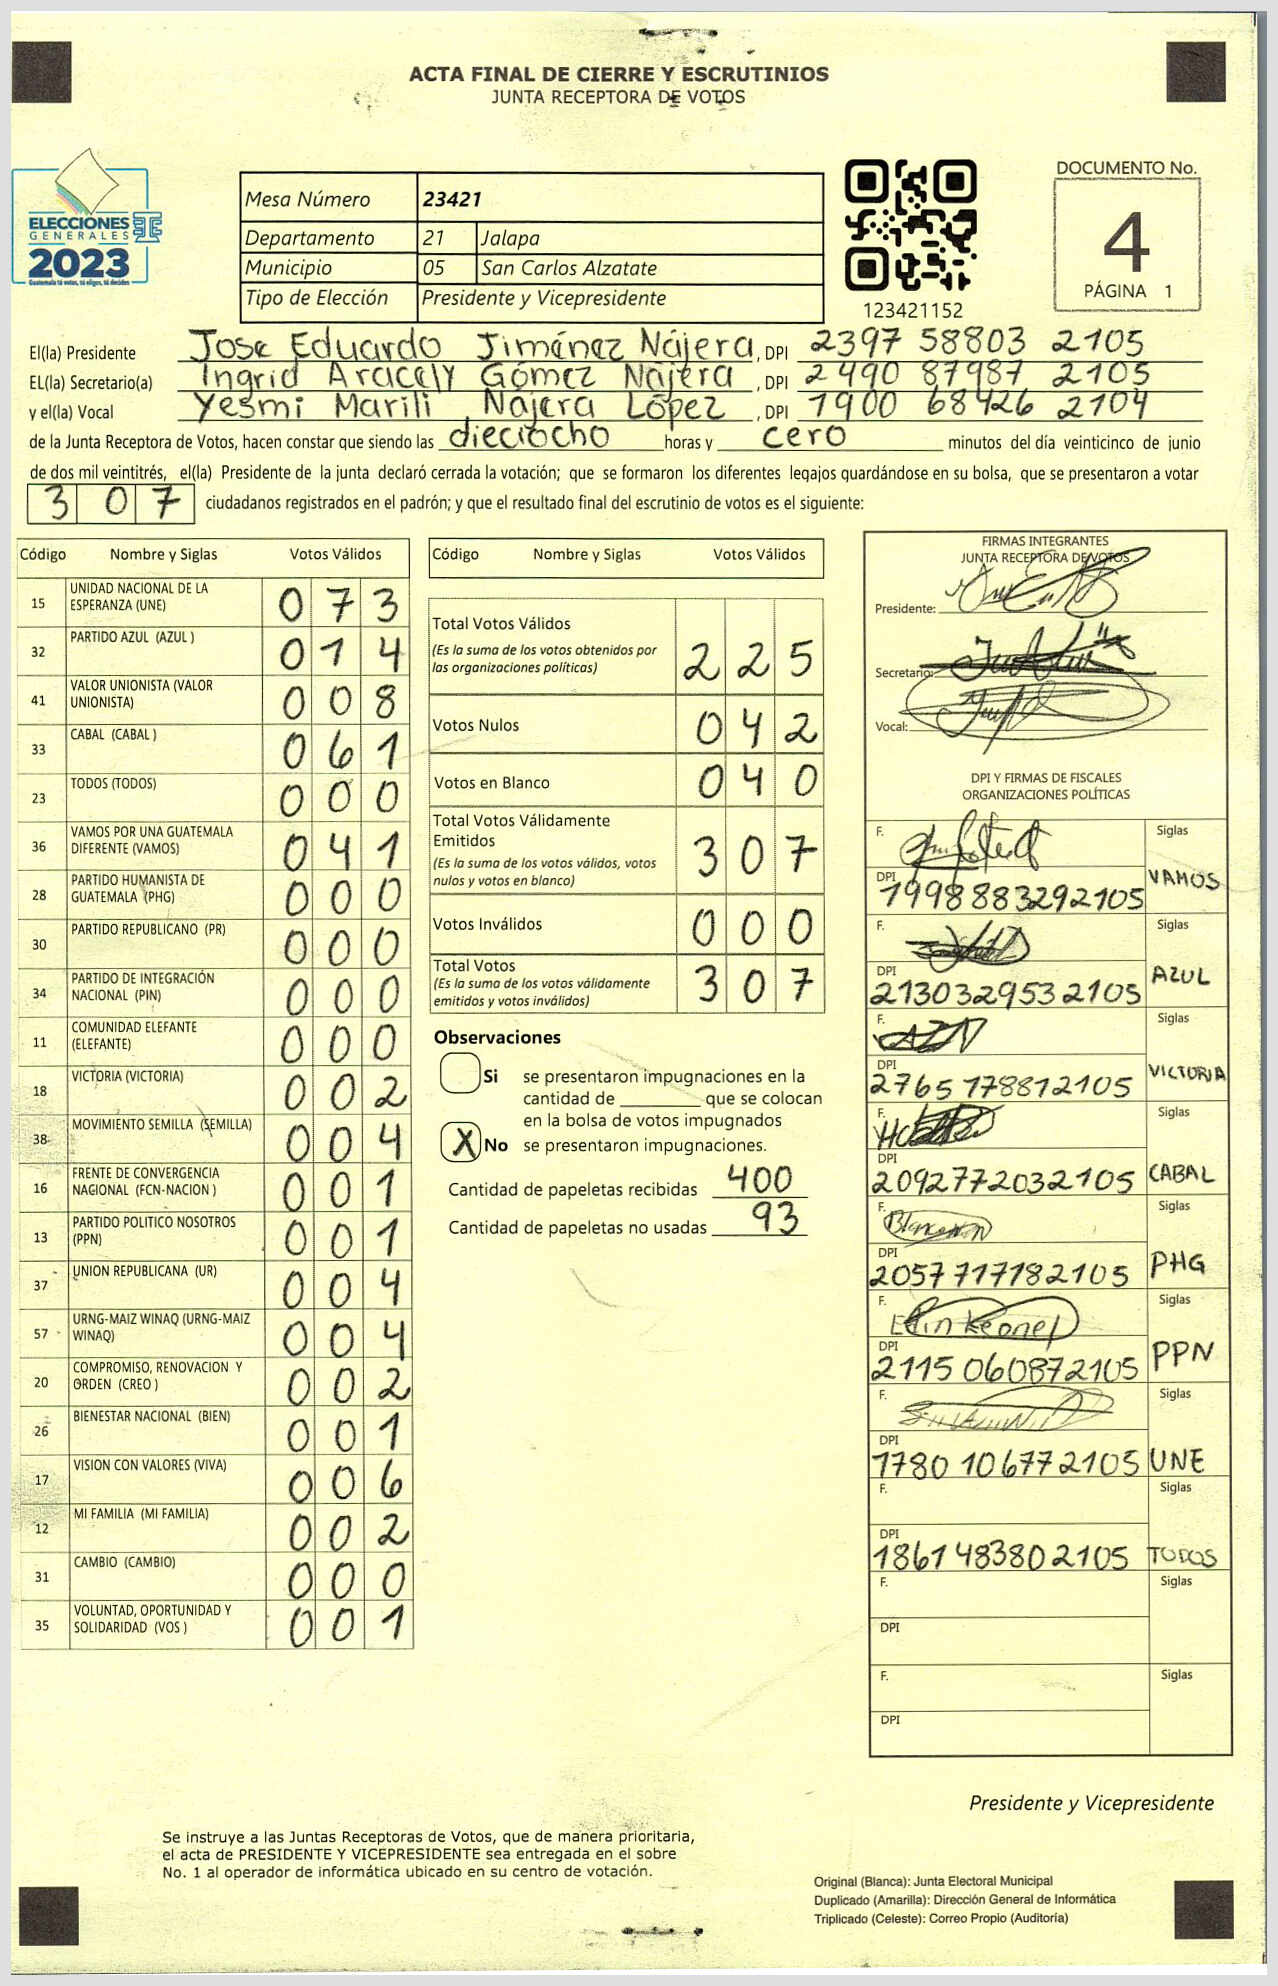 ACTA FINAL DE CIERRE Y ESCRUTINIOS
JUNTA RECEPTORA DE VOTOS
ELECCIONES
GENERALES
2023
Guatemala tú votas, tú eliges, tú decides
Mesa Número 23421
Departamento 21 Jalapa
Municipio 05 San Carlos Alzatate
Tipo de Elección Presidente y Vicepresidente
123421152
DOCUMENTO No.
4
PÁGINA 1
El(la) Presidente Jose Eduardo Jiménez Nájera, DPI 2397 58803 2105
EL(la) Secretario(a) Ingrid Aracely Gómez Nájera, DPI 2490 87987 2105
y el(la) Vocal Yesmi Marili Nájera López, DPI 1900 68426 2104
de la Junta Receptora de Votos, hacen constar que siendo las dieciocho horas y cero minutos del día veinticinco de junio
de dos mil veintitrés, el(la) Presidente de la junta declaró cerrada la votación; que se formaron los diferentes legajos guardándose en su bolsa, que se presentaron a votar
307 ciudadanos registrados en el padrón; y que el resultado final del escrutinio de votos es el siguiente:
Código Nombre y Siglas Votos Válidos
15 UNIDAD NACIONAL DE LA ESPERANZA (UNE) 073
32 PARTIDO AZUL (AZUL ) 014
41 VALOR UNIONISTA (VALOR UNIONISTA) 008
33 CABAL (CABAL ) 061
23 TODOS (TODOS) 000
36 VAMOS POR UNA GUATEMALA DIFERENTE (VAMOS) 041
28 PARTIDO HUMANISTA DE GUATEMALA (PHG) 000
30 PARTIDO REPUBLICANO (PR) 000
34 PARTIDO DE INTEGRACIÓN NACIONAL (PIN) 000
11 COMUNIDAD ELEFANTE (ELEFANTE) 000
18 VICTORIA (VICTORIA) 002
38 MOVIMIENTO SEMILLA (SEMILLA) 004
16 FRENTE DE CONVERGENCIA NACIONAL (FCN-NACION ) 001
13 PARTIDO POLITICO NOSOTROS (PPN) 001
37 UNION REPUBLICANA (UR) 004
57 URNG-MAIZ WINAQ (URNG-MAIZ WINAQ) 004
20 COMPROMISO, RENOVACION Y ORDEN (CREO ) 002
26 BIENESTAR NACIONAL (BIEN) 001
17 VISION CON VALORES (VIVA) 006
12 MI FAMILIA (MI FAMILIA) 002
31 CAMBIO (CAMBIO) 000
35 VOLUNTAD, OPORTUNIDAD Y SOLIDARIDAD (VOS ) 001
Código Nombre y Siglas Votos Válidos
Total Votos Válidos 225
(Es la suma de los votos obtenidos por
las organizaciones políticas)
Votos Nulos 042
Votos en Blanco 040
Total Votos Válidamente
Emitidos 307
(Es la suma de los votos válidos, votos
nulos y votos en blanco)
Votos Inválidos 000
Total Votos 307
(Es la suma de los votos válidamente
emitidos y votos inválidos)
Observaciones
Si se presentaron impugnaciones en la
cantidad de que se colocan
en la bolsa de votos impugnados
X No se presentaron impugnaciones.
Cantidad de papeletas recibidas 400
Cantidad de papeletas no usadas 93
FIRMAS INTEGRANTES
JUNTA RECEPTORA DE VOTOS
Presidente:
Secretario:
Vocal:
DPI Y FIRMAS DE FISCALES
ORGANIZACIONES POLÍTICAS
F. Siglas
DPI 1998883292105 VAMOS
F. Siglas
DPI 2130329532105 AZUL
F. Siglas
DPI 2765178812105 VICTORIA
F. Siglas
DPI 2092772032105 CABAL
F. Siglas
DPI 2057717182105 PHG
F. Siglas
DPI 2115060872105 PPN
F. Siglas
DPI 1780106772105 UNE
F. Siglas
DPI 1861483802105 TODOS
F. Siglas
DPI
F. Siglas
DPI
Presidente y Vicepresidente
Se instruye a las Juntas Receptoras de Votos, que de manera prioritaria,
el acta de PRESIDENTE Y VICEPRESIDENTE sea entregada en el sobre
No. 1 al operador de informática ubicado en su centro de votación.
Original (Blanca): Junta Electoral Municipal
Duplicado (Amarilla): Dirección General de Informática
Triplicado (Celeste): Correo Propio (Auditoría)